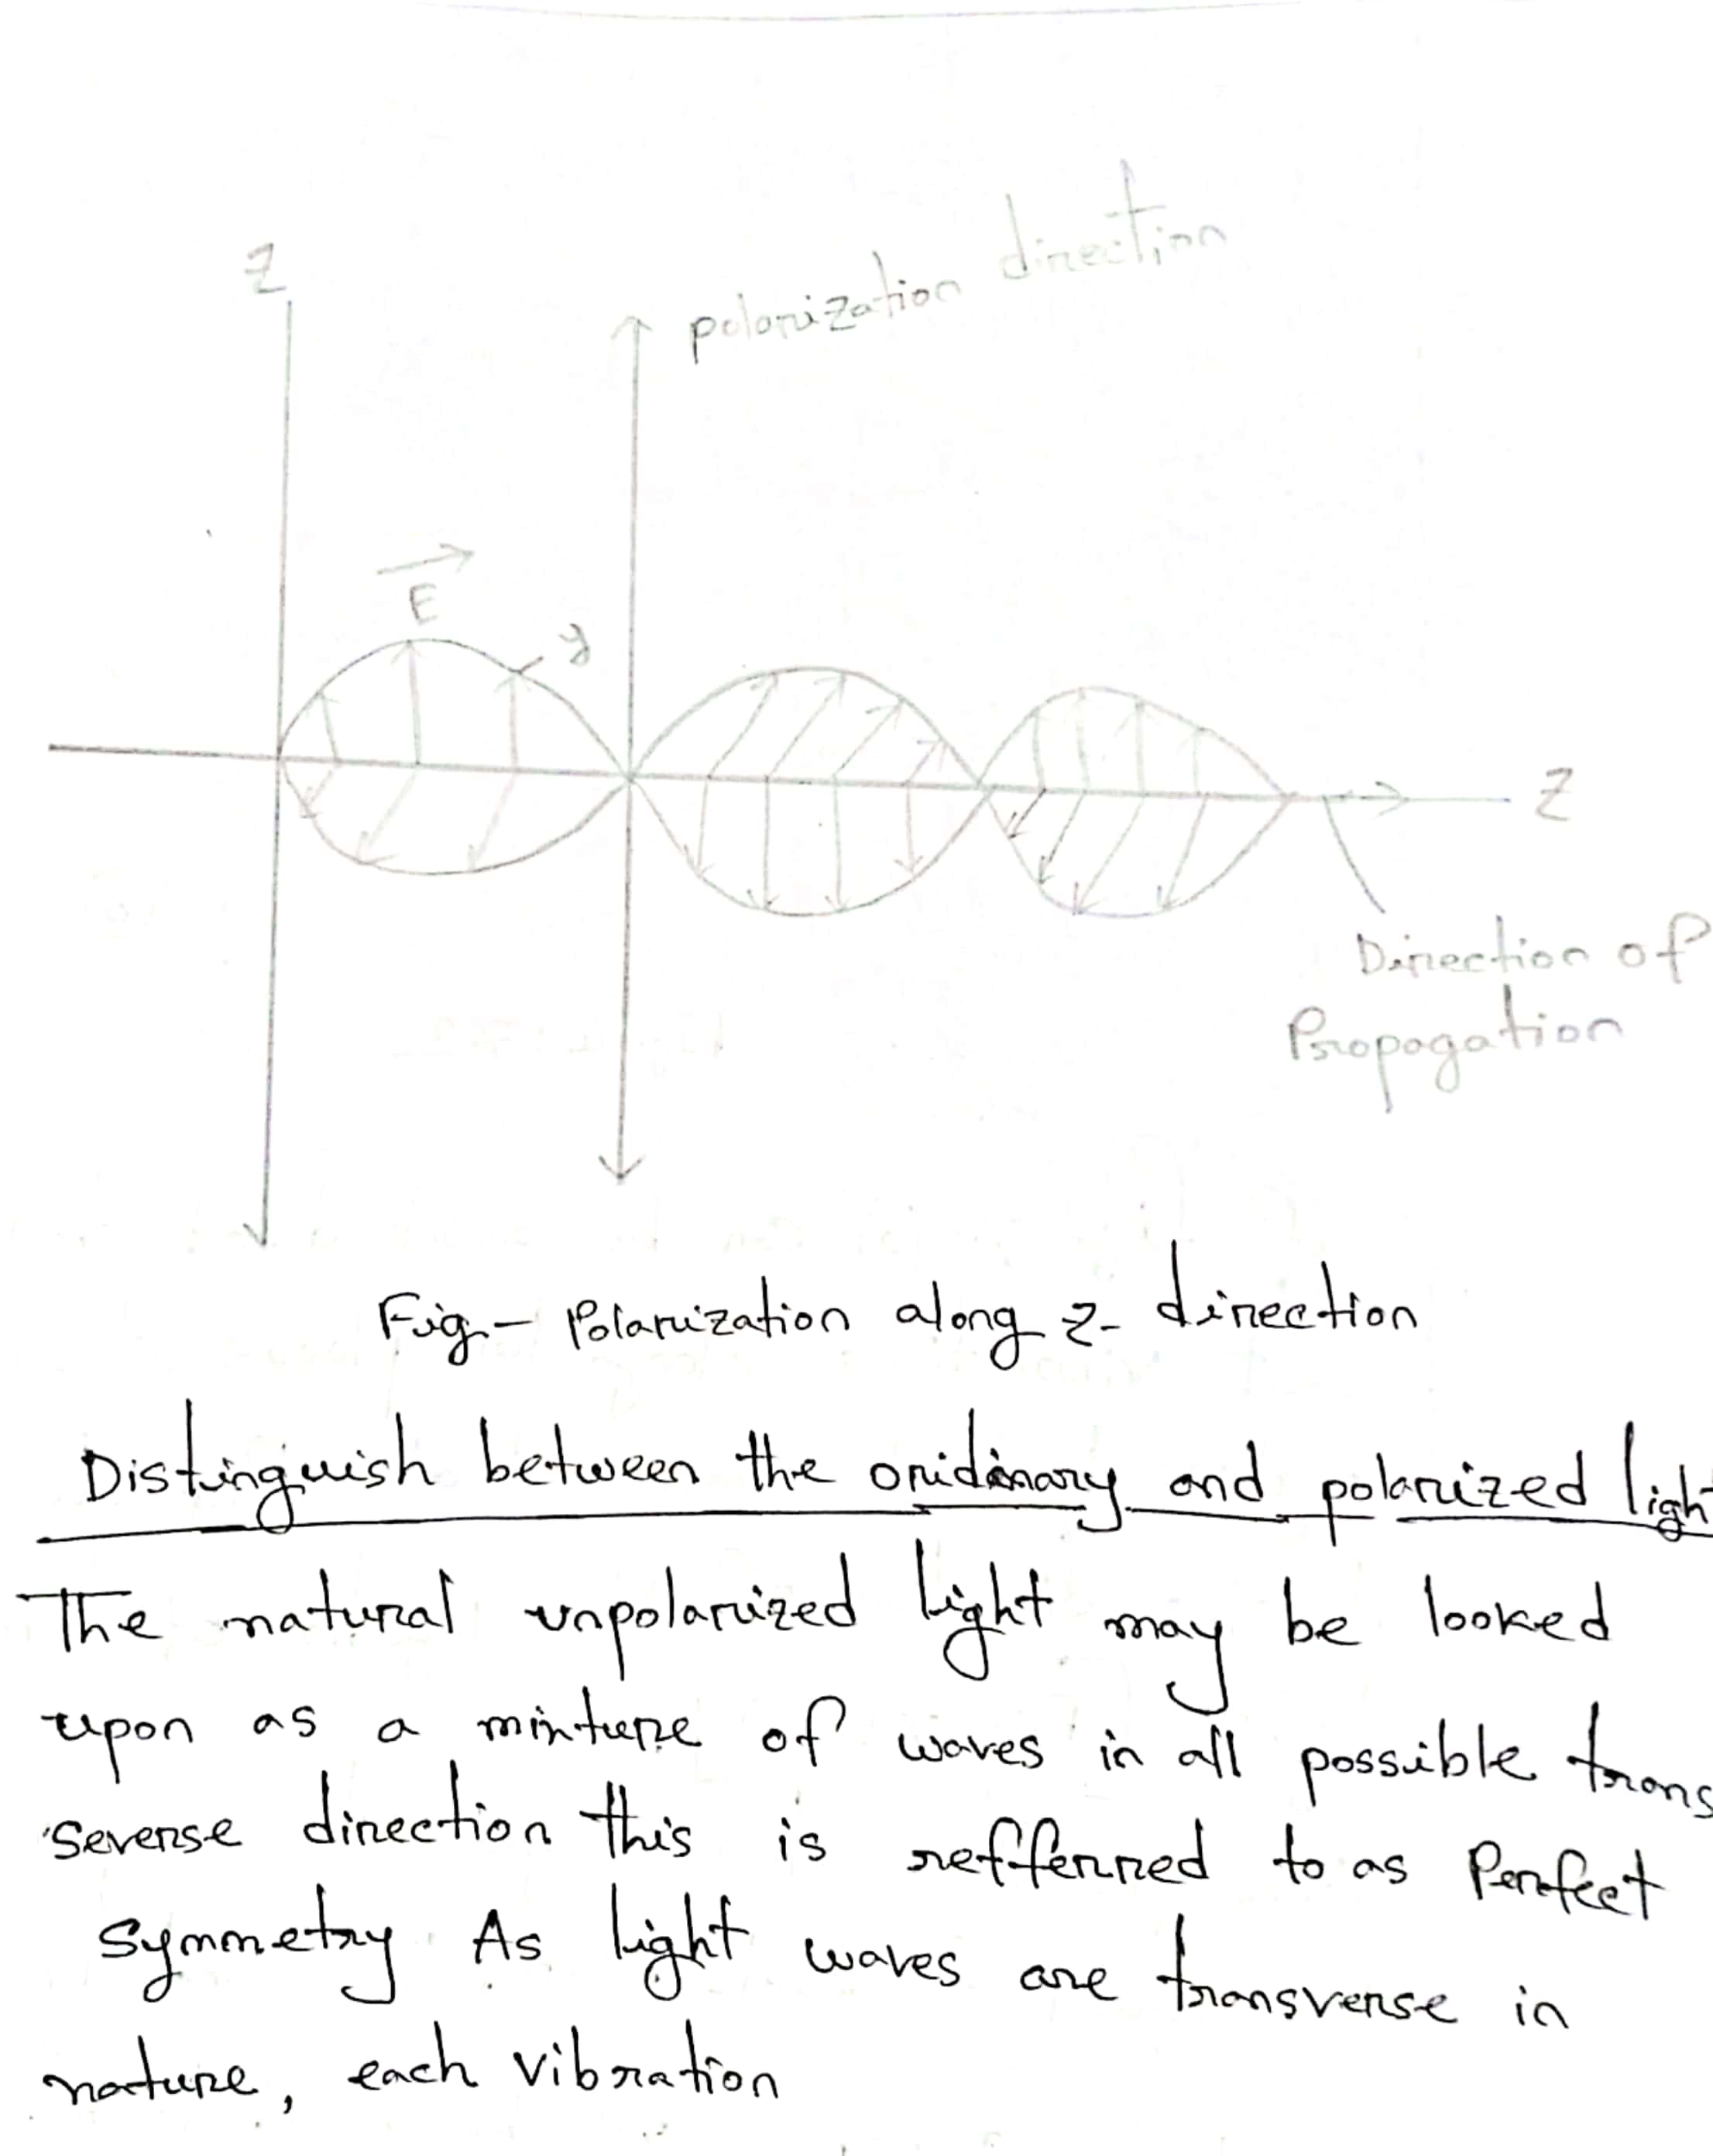 Z
polarization direction
E
y
Z
Direction of
Propagation
Fig - Polarization along z- direction
Distinguish between the oridinary and polarized ligh
The natural unpolarized light may be looked
upon as a mixture of waves in all possible trans
severse direction this is refferred to as Perfect
symmetry As light waves are transverse in
nature, each vibration